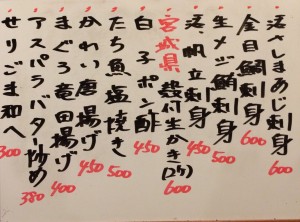 活〆さしまあじ刺身
金目鯛刺身 600
生メジ鮪刺身 500
活、帆立刺身 450
宮城県殻付生かき(2ケ) 600
白子ポン酢 450
たち魚塩焼き 500
かれい唐揚げ 450
まぐろ竜田揚げ 400
アスパラバター炒め 380
せりごま和へ 300